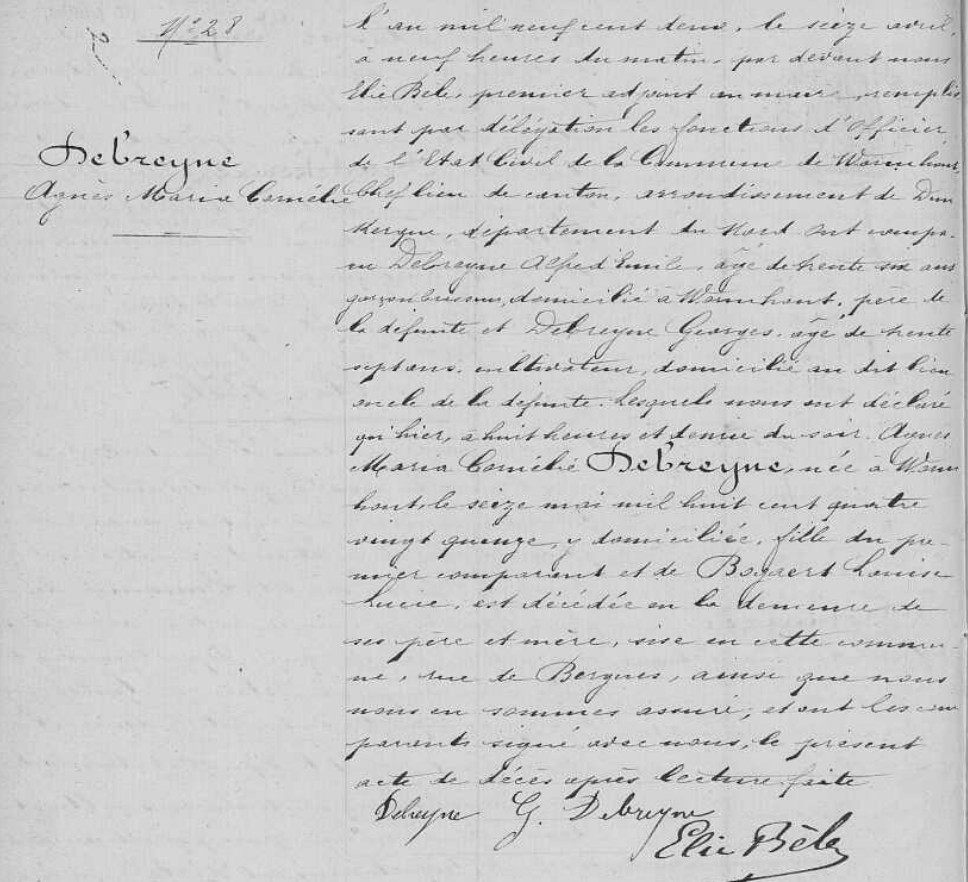 N° 28
Debreyne
Agnès Maria Cornélie
L'an mil neuf cent deux, le seize avril,
à neuf heures du matin, par devant nous
Elie Bèle, premier adjoint au maire, remplis
sant par délégation les fonctions d'Officier
de l'Etat Civil de la Commune de Wormhout,
Chef lieu de canton, arrondissement de Dun
kerque, département du Nord ont compa-
ru Debreyne Alfred Emile, âgé de trente six ans
garçon brasseur, domicilié à Wormhout, père de
la défunte et Debreyne Georges, âgé de trente
sept ans, cultivateur, domicilié au dit lieu
oncle de la défunte. Lesquels nous ont déclaré
qu'hier, à huit heures et demie du soir, Agnès
Maria Cornélie Debreyne, née à Worm
hout, le seize mai mil huit cent quatre
vingt quinze, y domiciliée, fille du pre-
mier comparant et de Bogaert Louise
Lucie, est décédée en la demeure de
ses père et mère, sise en cette commu-
ne, rue de Bergues, ainsi que nous
nous en sommes assuré, et ont les com
parents signé avec nous, le présent
acte de décès après lecture faite
Debreyne G. Debreyne
Elie Bèle